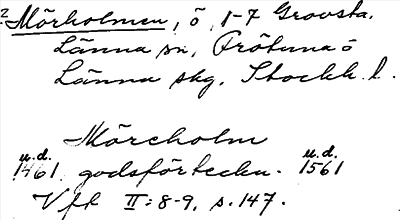 2 Mörholmen, ö, 1-7 Grovsta.
Länna sn, Frötuna ö
Länna skg, Stockh. l.
Mörcholm
u.d. u.d.
1461. godsförteckn. 1561
Vft II:8-9, s. 147.